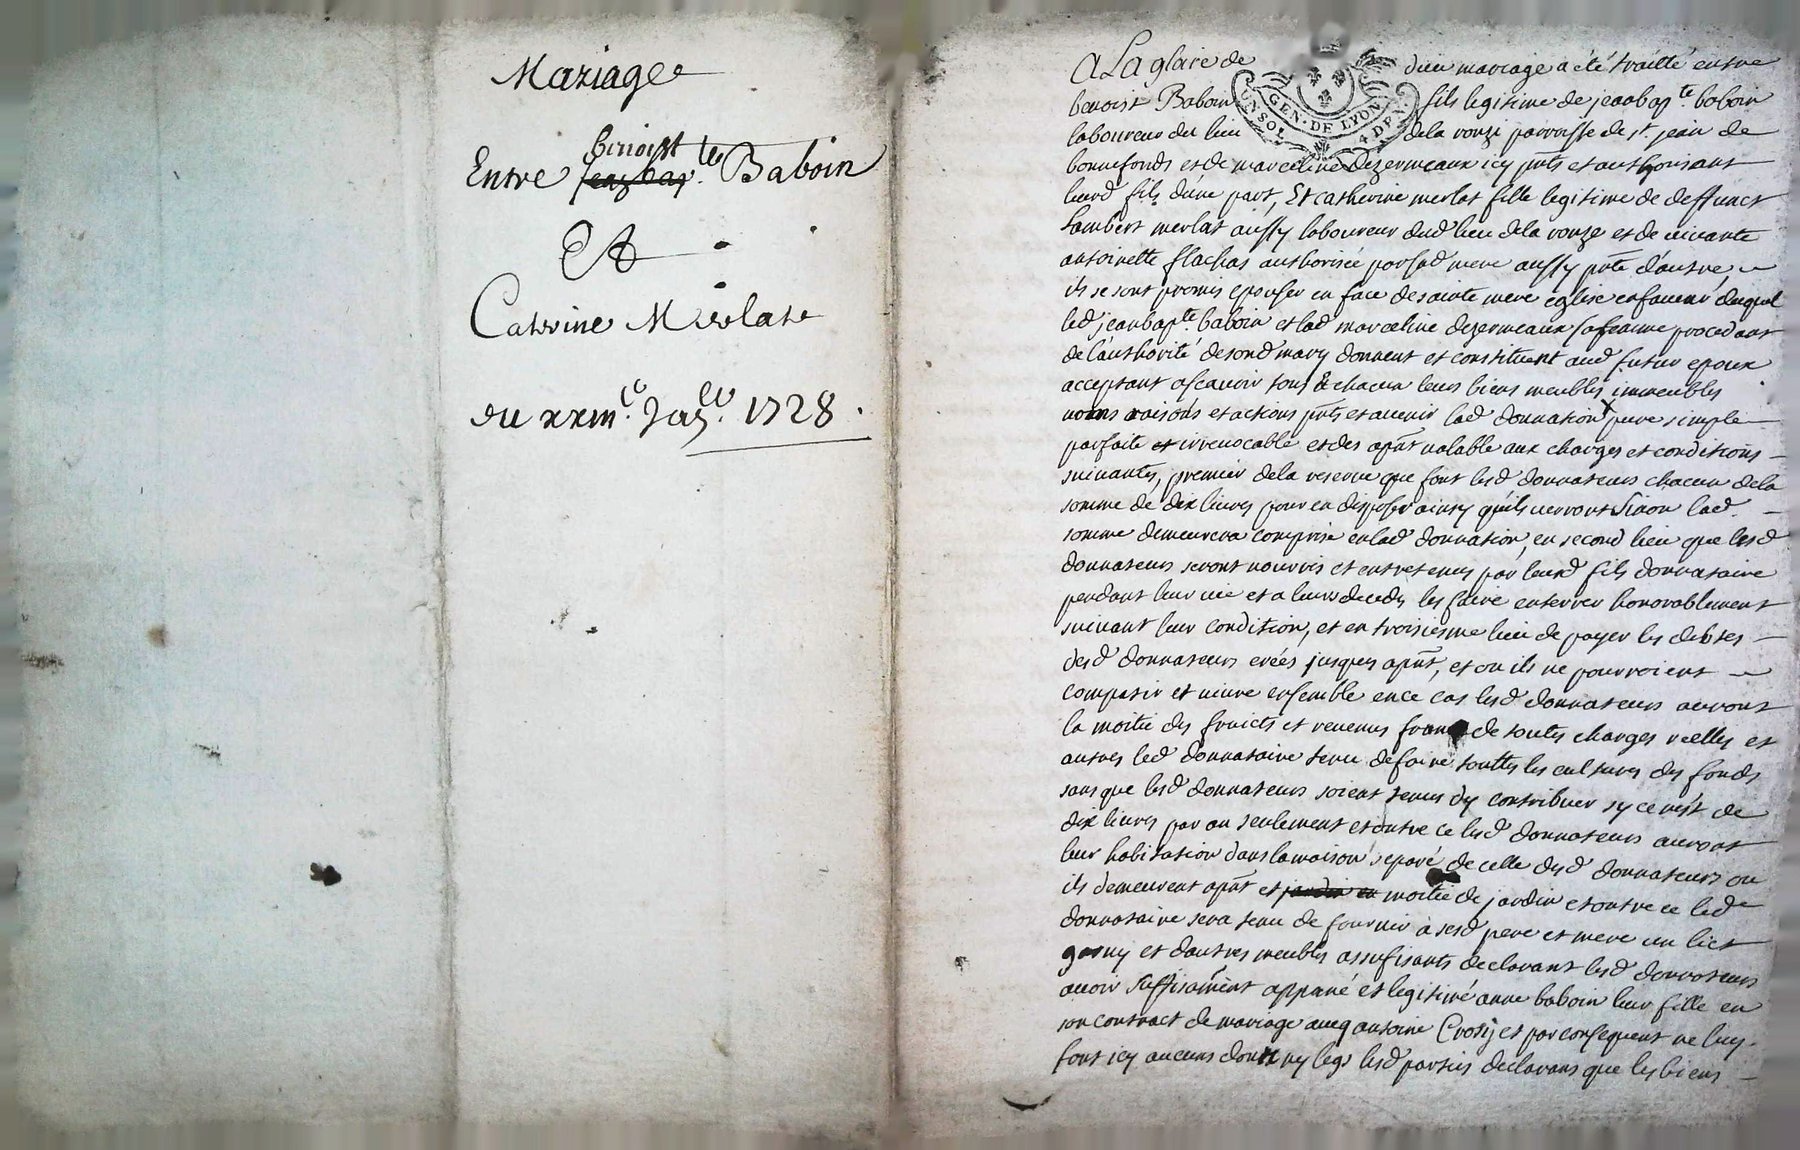 Mariage
benoist
Entre jeanbap.te Baboin
Et
Catrine Merlate
du xxiii.e Jan.er 1728.
A La gloire de dieu mariage a été traitté entre
benoist Baboin fils legitime de jeanbap.te baboin
laboureur du lieu dela rouze parroisse de st. jean de
bonnefonds et de marceline dezermeaux icy pnts et authorisant
leurd fils dune part, Et catherine merlat fille legitime de deffunct
Lambert merlat aussy laboureur dud lieu dela rouze et de vivante
antoinette flachas authorisée par sad mere aussy pnte d'autre,
ils se sont promis epouser en face de sainte mere eglise en faveur duquel
led jeanbap.te baboin et lad marceline dezermeaux sa femme procedant
de l'authorité desond mary donnent et constituent aud futur epoux
acceptant asçavoir tous & chacun leurs biens meubles immeubles
noms raisons et actions pnts et avenir lad donnation pure simple
parfaite et irrevocable et des apnt valable aux charges et conditions
suivantes, premier dela reserve que font lesd donnateurs chacun dela
somme de dix livres pour en disposer ainsy quils verront Sinon lad.
somme demeurera comprise en lad donnation, en second lieu que lesd
donnateurs seront nourris et entretenus par leurd fils donnataire
pendant leur vie et a leurs deceds les faire enterrer honorablement
suivant leur condition, et en troisiesme lieu de payer les debtes
desd donnateurs creés jusques apnt, et ou ils ne pourroient
compatir et vivre ensemble en ce cas lesd donnateurs auront
la moitie des fruicts et revenus franc de toutes charges reelles et
autres led donnataire tenu de faire touttes les cultures des fonds
sans que lesd donnateurs soient tenus d'y contribuer sy ce n'est de
dix livres par an seulement et outre ce lesd donnateurs auront
leur habitation dans la maison separé de celle desd donnateurs ou
ils demeurent apnt et jardin en moitié de jardin et outre ce led
donnataire sera tenu de fournir à sesd pere et mere un lict
garny et dautres meubles assufisants declarant lesd donnateurs
avoir suffisament appané et legitimé anne baboin leur fille en
son contract de mariage aveq antoine Crozij et par consequent ne luy
font icy aucuns dons ny legs lesd parties declarans que les biens
GEN. DE LYON
UN SOL 4 DEN.